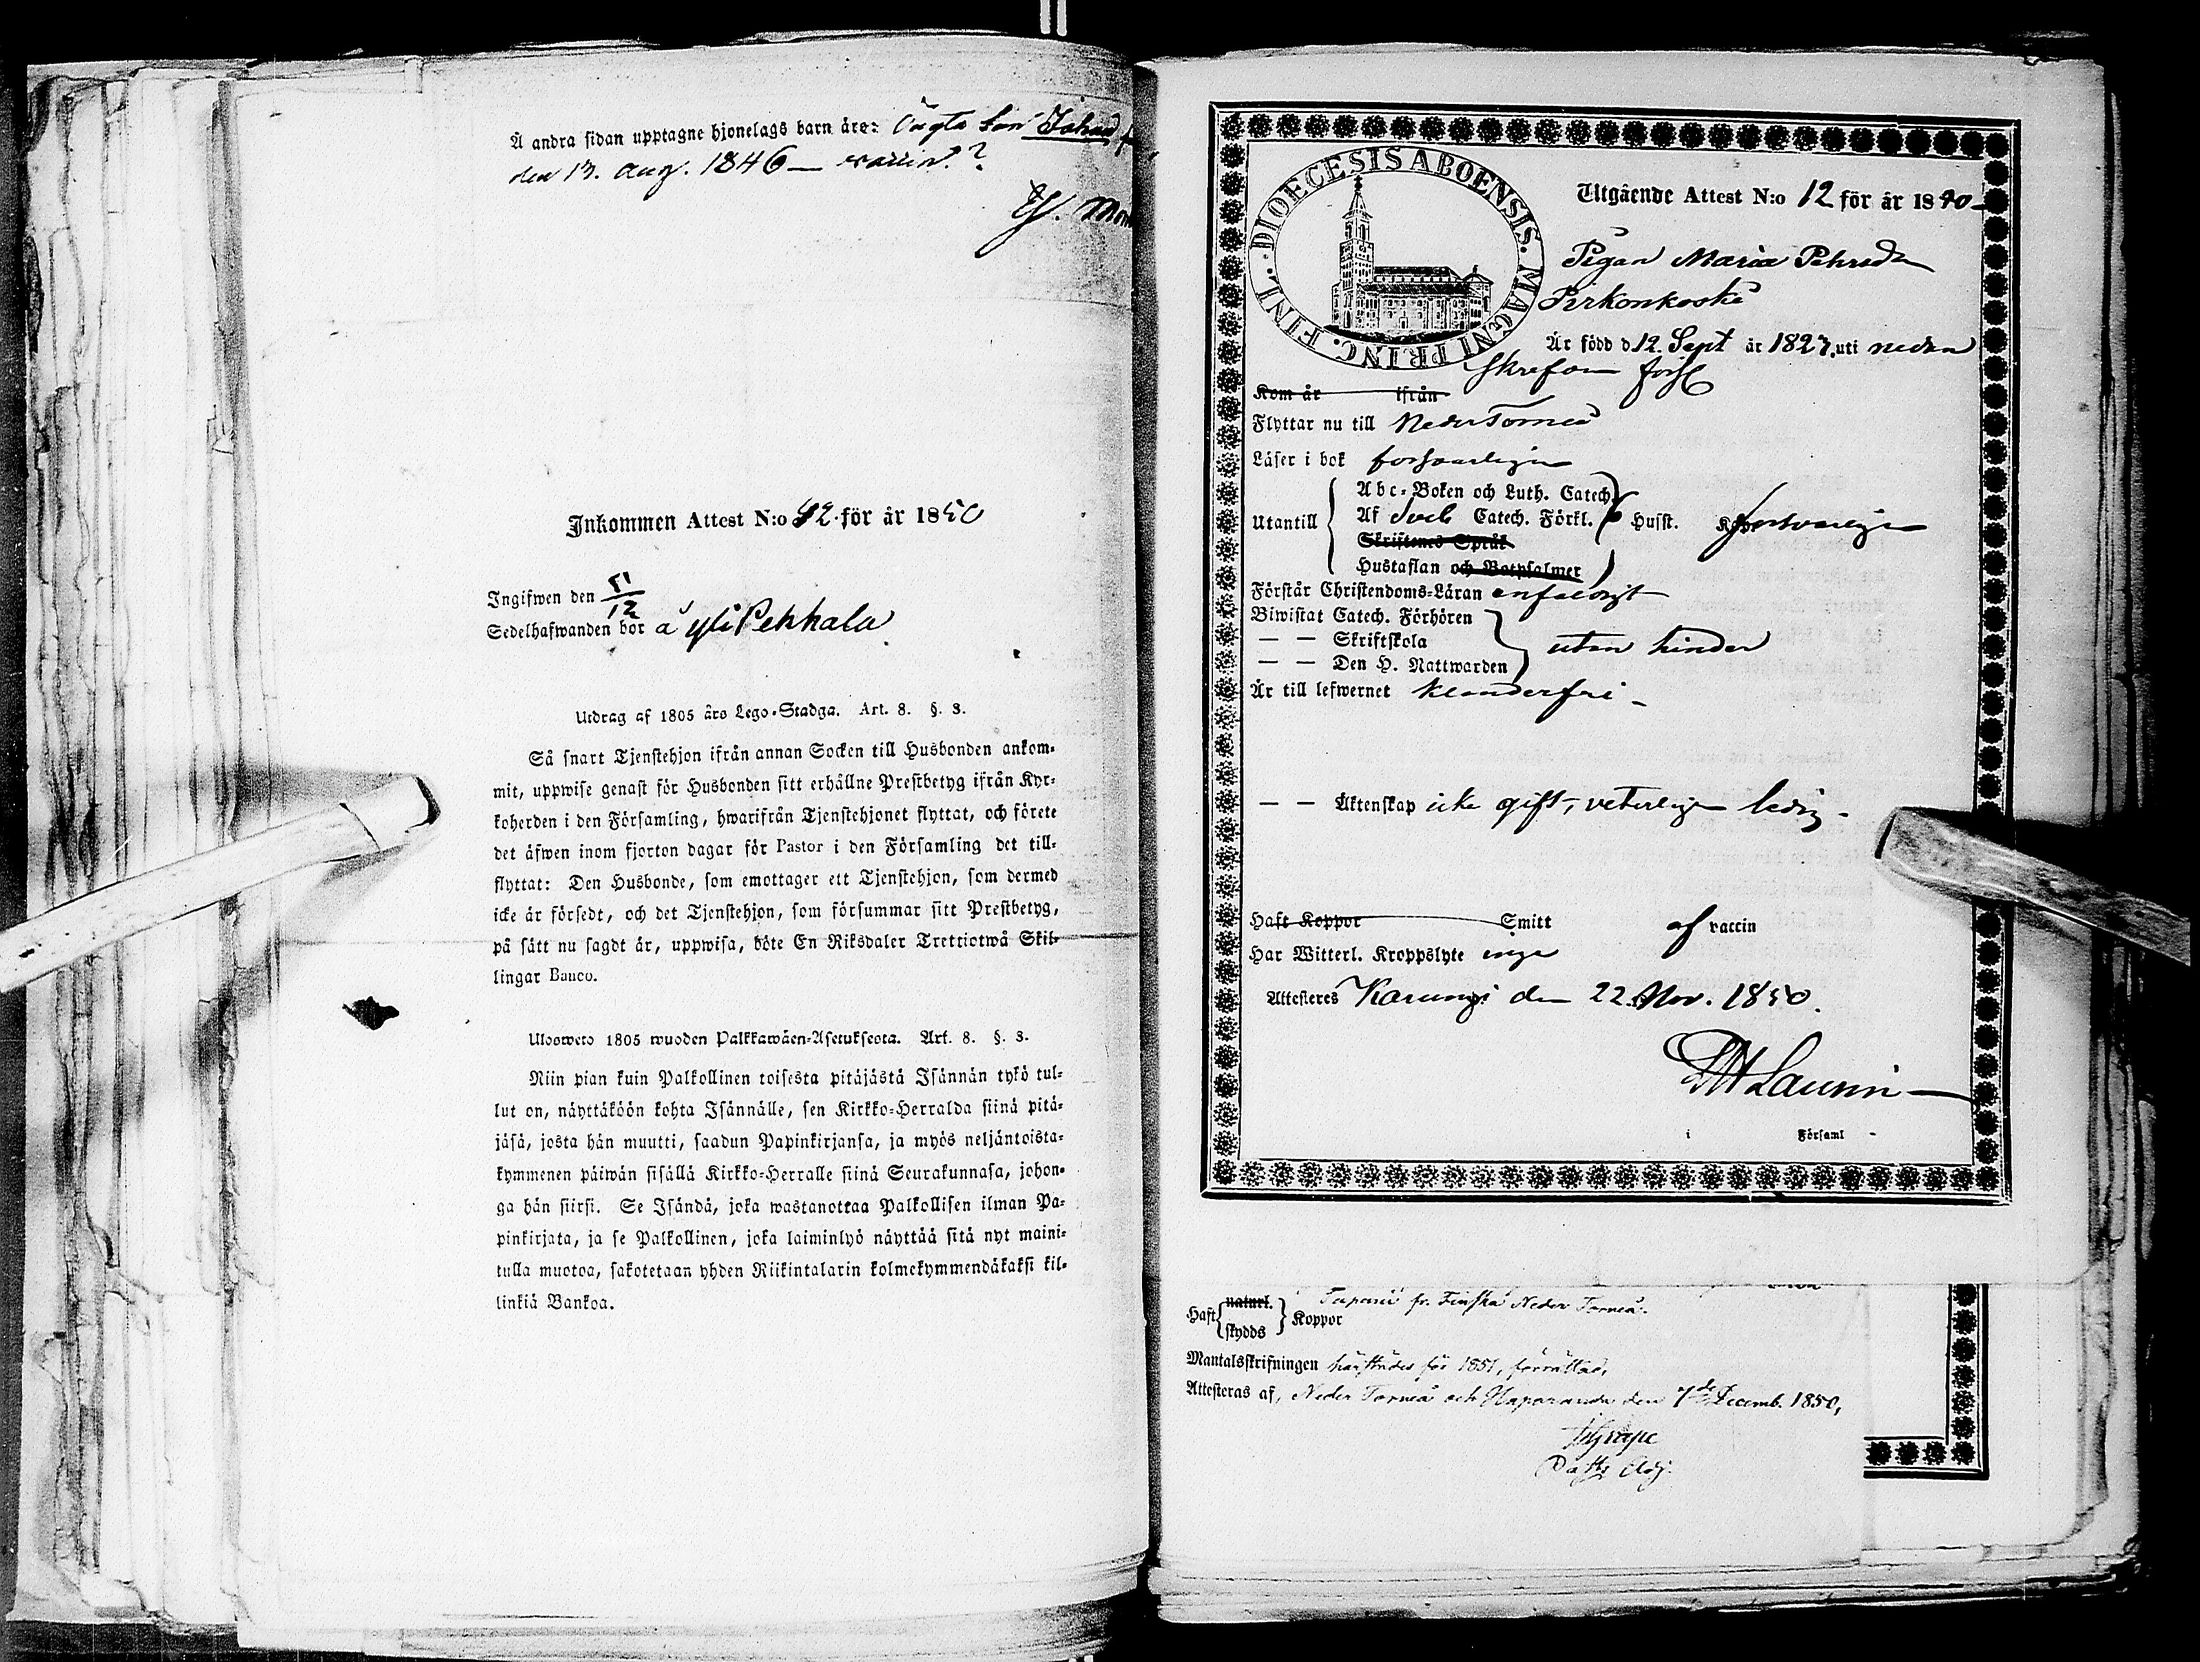 Å andra sidan upptagne hjonelags barn äro: Ägta son Johan
den 13. Aug. 1846 — vaccin.?
Inkommen Attest N:o 42. för år 1850
Ingifwen den 51/12
Sedelhafwanden bor å yli Pekkala
Utdrag af 1805 års Lego-Stadga. Art. 8. §. 3.
Så snart Tjenstehjon ifrån annan Socken till Husbonden ankom-
mit, uppwise genast för Husbonden sitt erhållne Prestbetyg ifrån Kyr-
koherden i den Församling, hwarifrån Tjenstehjonet flyttat, och förete
det äfwen inom fjorton dagar för Pastor i den Församling det till-
flyttat: Den Husbonde, som emottager ett Tjenstehjon, som dermed
icke är försedt, och det Tjenstehjon, som försummar sitt Prestbetyg,
på sätt nu sagdt är, uppwisa, böte En Riksdaler Trettiotwå Skil-
lingar Banco.
Ulosweto 1805 wuoden Palkkawäen-Asetuksesta. Art. 8. §. 3.
Niin pian kuin Palkollinen toisesta pitäjästä Isännän tykö tul-
lut on, näyttäköön kohta Isännälle, sen Kirkko-Herralda siinä pitä-
jäsä, josta hän muutti, saadun Papinkirjansa, ja myös neljäntoista-
kymmenen päiwän sisällä Kirkko-Herralle siinä Seurakunnasa, johon-
ga hän siirsi. Se Isändä, joka wastanottaa Palkollisen ilman Pa-
pinkirjata, ja se Palkollinen, joka laiminlyö näyttää sitä nyt maini-
tulla muotoa, sakotetaan yhden Riikintalarin kolmekymmendäkaksi kil-
linkiä Bankoa.
DIOECESIS ABOENSIS. MAGNI PRINC. FINL.
Utgående Attest N:o 12 för år 1840
Pigan Maria Pehrsdr
Pirkonkoski
Är född d 12. Sept år 1827. uti nedan
skrefom förs
Kom år ifrån
Flyttar nu till Neder Torneå
Läser i bok försvarligen
Utantill Abc-Boken och Luth. Catech.
Af Sveb Catech. Förkl. Husst. försvarligen
Skriftenes Språk
Hustaflan och Botpsalmer
Förstår Christendoms-Läran enfaldigt
Biwistat Catech. Förhören
— — Skriftskola utan hinder
— — Den H. Nattwarden
Är till lefwernet klanderfri -
— — Äktenskap icke gift, veterligen ledig -
Haft Koppor Smitt af vaccin
Har Witterl. Kroppslyte inga
Attesteres Karungi den 22. Nov. 1850.
Laurin
i Församl -
Tapani fr. Finska Neder Torneå.
Haft naturl. skydds Koppor
Mantalsskrifningen härstädes för 1851, förrättad,
Attesteras af, Neder Torneå och Haparanda den 7de Decemb. 1850,
Grape
Past: Adj.